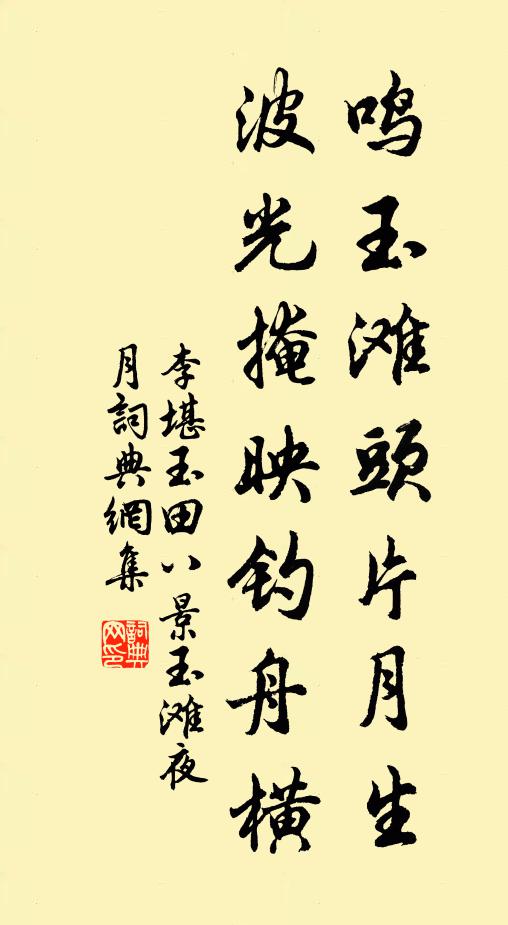 鸣玉滩頭片月生
波光掩映钓舟横
李堪玉田八景玉滩夜
月詞典網集
詞典
网印